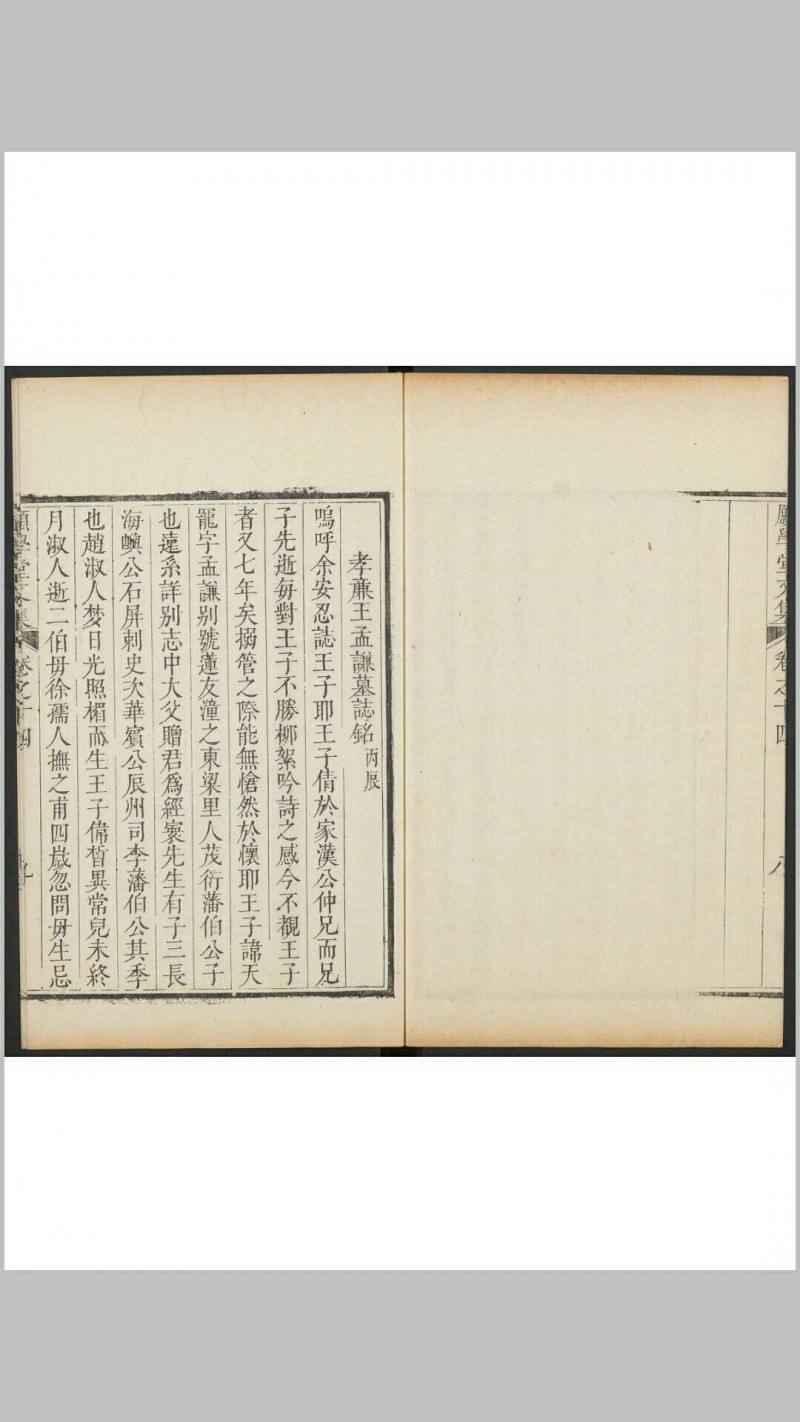 願學堂文集
卷之十四
八
孝亷王孟謙墓誌銘丙辰
嗚呼余安忍誌王子耶王子倩於家漢公仲兄而兄
子先逝每對王子不勝柳絮吟詩之感今不覩王子
者又七年矣搦管之際能無愴然於懷耶王子諱天
寵字孟謙别號蓮友潼之東梁里人茂衍藩伯公子
也遠系詳别志中大父贈君為經寰先生有子三長
海嶼公石屏刺史次華賓公辰州司李藩伯公其季
也趙淑人梦日光照楣而生王子偉晳異常兒未終
月淑人逝二伯毋徐孺人撫之甫四歲忽問毋生忌
願學堂文集
卷之十四
九